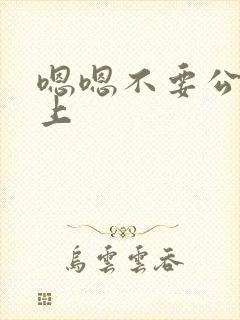 嗯嗯不要公
上
烏雲雲吞